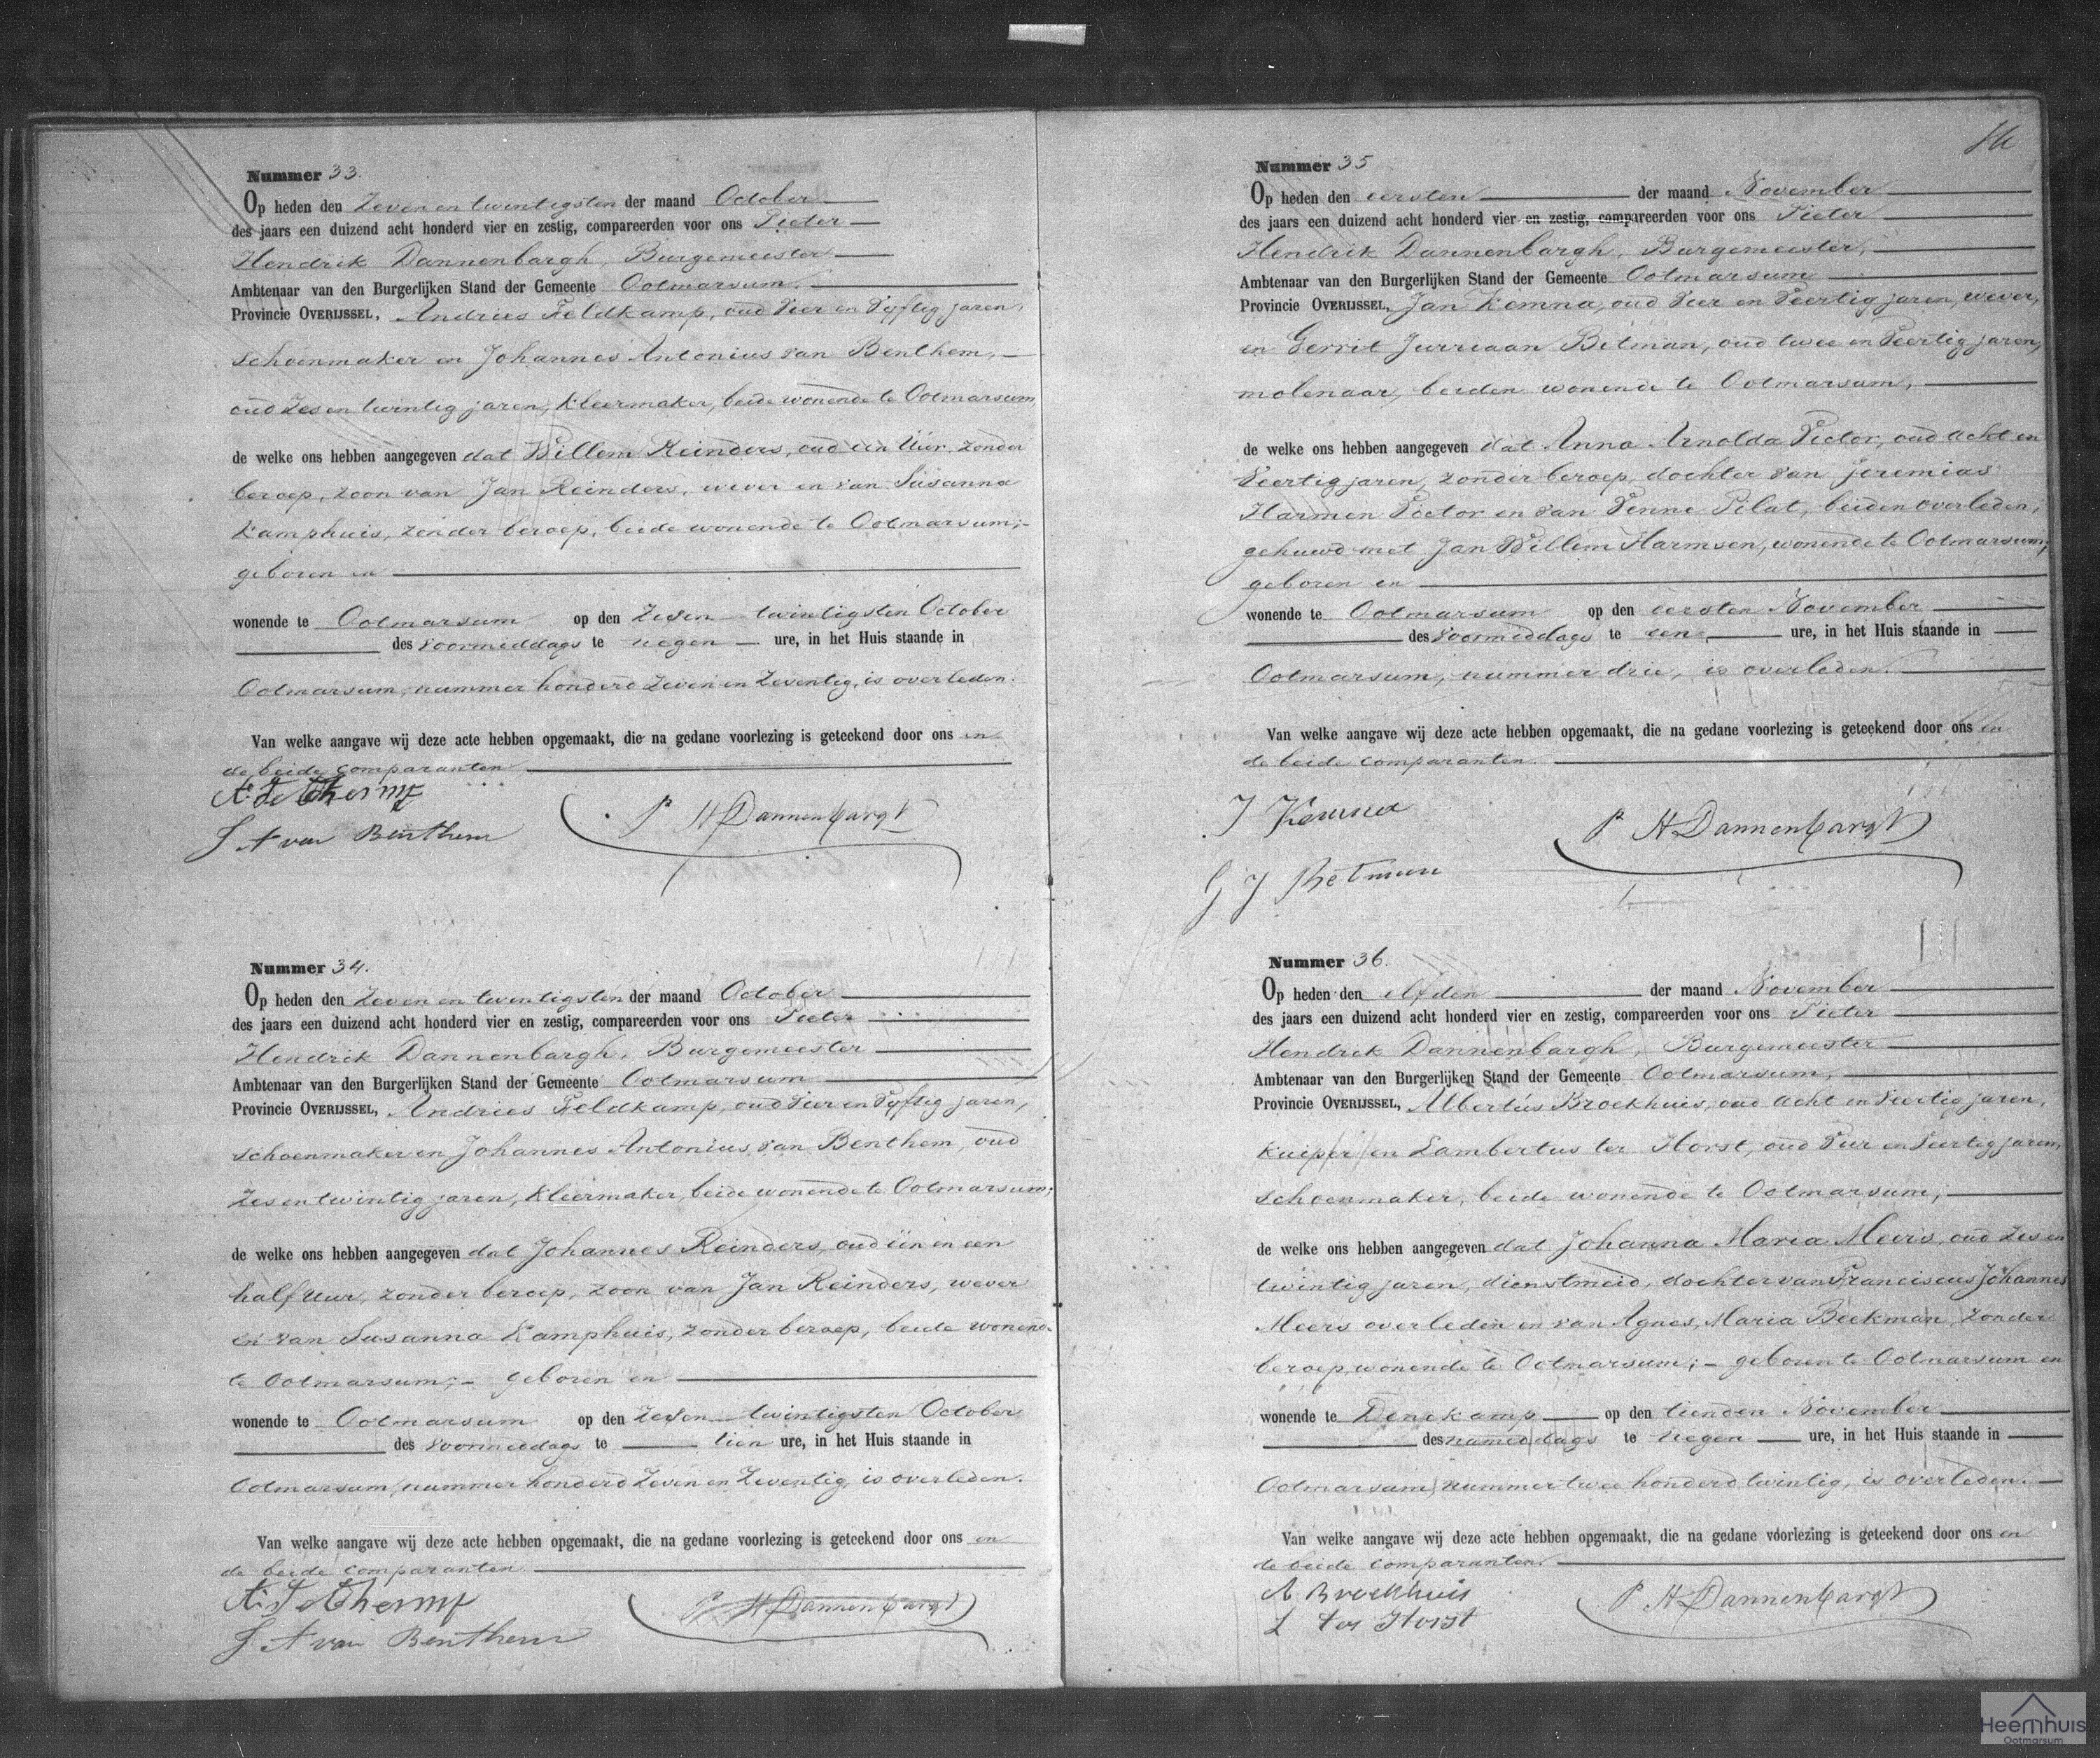 Nummer 33.
Op heden den Zeven en twintigsten der maand October
des jaars een duizend acht honderd vier en zestig, compareerden voor ons Pieter
Hendrik Dannenbargh, Burgemeester
Ambtenaar van den Burgerlijken Stand der Gemeente Ootmarsum.
Provincie OVERIJSSEL, Andries Feldkamp, oud Vier en Vyftig jaren,
schoenmaker en Johannes Antonius van Benthem,
oud Zes en twintig jaren, Kleermaker, beide wonende te Ootmarsum,
de welke ons hebben aangegeven dat Willem Reinders, oud één Uur, zonder
beroep, zoon van Jan Reinders, wever en van Susanna
Kamphuis, zonder beroep, beide wonende te Ootmarsum;
geboren en
wonende te Ootmarsum op den Zeven twintigsten October
des voormiddags te negen ure, in het Huis staande in
Ootmarsum, nummer honderd Zeven en Zeventig, is overleden.
Van welke aangave wij deze acte hebben opgemaakt, die na gedane voorlezing is geteekend door ons en
de beide comparanten
J A van Benthem P H Dannenbargh
Nummer 34.
Op heden den Zeven en twentigsten der maand October
des jaars een duizend acht honderd vier en zestig, compareerden voor ons Pieter
Hendrik Dannenbargh, Burgemeester
Ambtenaar van den Burgerlijken Stand der Gemeente Ootmarsum
Provincie OVERIJSSEL, Andries Feldkamp, oud Vier en Vyftig jaren,
schoenmaker en Johannes Antonius van Benthem, oud
Zes en twintig jaren, Kleermaker, beide wonende te Ootmarsum;
de welke ons hebben aangegeven dat Johannes Reinders, oud één en een
half uur, zonder beroep, zoon van Jan Reinders, wever
en van Susanna Kamphuis, zonder beroep, beide wonend.
te Ootmarsum; geboren en
wonende te Ootmarsum op den Zeven twintigsten October
des voormiddags te tien ure, in het Huis staande in
Ootmarsum, nummer honderd Zeven en Zeventig, is overleden.
Van welke aangave wij deze acte hebben opgemaakt, die na gedane voorlezing is geteekend door ons en
de beide comparanten
J A van Benthem P H Dannenbargh
Nummer 35
Op heden den eersten der maand November
des jaars een duizend acht honderd vier en zestig, compareerden voor ons Pieter
Hendrik Dannenbargh, Burgemeester,
Ambtenaar van den Burgerlijken Stand der Gemeente Ootmarsum
Provincie OVERIJSSEL, Jan Kemna, oud Vier en Veertig jaren, wever,
en Gerrit Jurriaan Betman, oud twee en Veertig jaren,
molenaar, beiden wonende te Ootmarsum,
de welke ons hebben aangegeven dat Anna Arnolda Pictor, oud acht en
Veertig jaren, zonder beroep, dochter van Jeremias
Harmen Pictor en van Fenne Pilat, beiden overleden;
gehuwd met Jan Willem Harmsen, wonende te Ootmarsum;
geboren en
wonende te Ootmarsum op den eersten November
des voormiddags te een ure, in het Huis staande in
Ootmarsum, nummer drie, is overleden.
Van welke aangave wij deze acte hebben opgemaakt, die na gedane voorlezing is geteekend door ons en
de beide comparanten.
J Kemna P H Dannenbargh
G J Betman
Nummer 36.
Op heden den elfden der maand November
des jaars een duizend acht honderd vier en zestig, compareerden voor ons Pieter
Hendrik Dannenbargh, Burgemeester
Ambtenaar van den Burgerlijken Stand der Gemeente Ootmarsum,
Provincie OVERIJSSEL, Albertus Broekhuis, oud acht en Veertig jaren,
Kuiper en Lambertus ter Horst, oud Vier en Veertig jaren,
schoenmaker, beide wonende te Ootmarsum;
de welke ons hebben aangegeven dat Johanna Maria Meers, oud Zes en
twintig jaren, dienstmeid, dochter van Franciscus Johannes
Meers overleden en van Agnes Maria Beekman, zonder
beroep, wonende te Ootmarsum; geboren te Ootmarsum en
wonende te Denekamp op den tienden November
des namiddags te negen ure, in het Huis staande in
Ootmarsum, nummer twee honderd twintig, is overleden.
Van welke aangave wij deze acte hebben opgemaakt, die na gedane voorlezing is geteekend door ons en
de beide comparanten.
A Broekhuis P H Dannenbargh
L ter Horst
Heemhuis
Ootmarsum